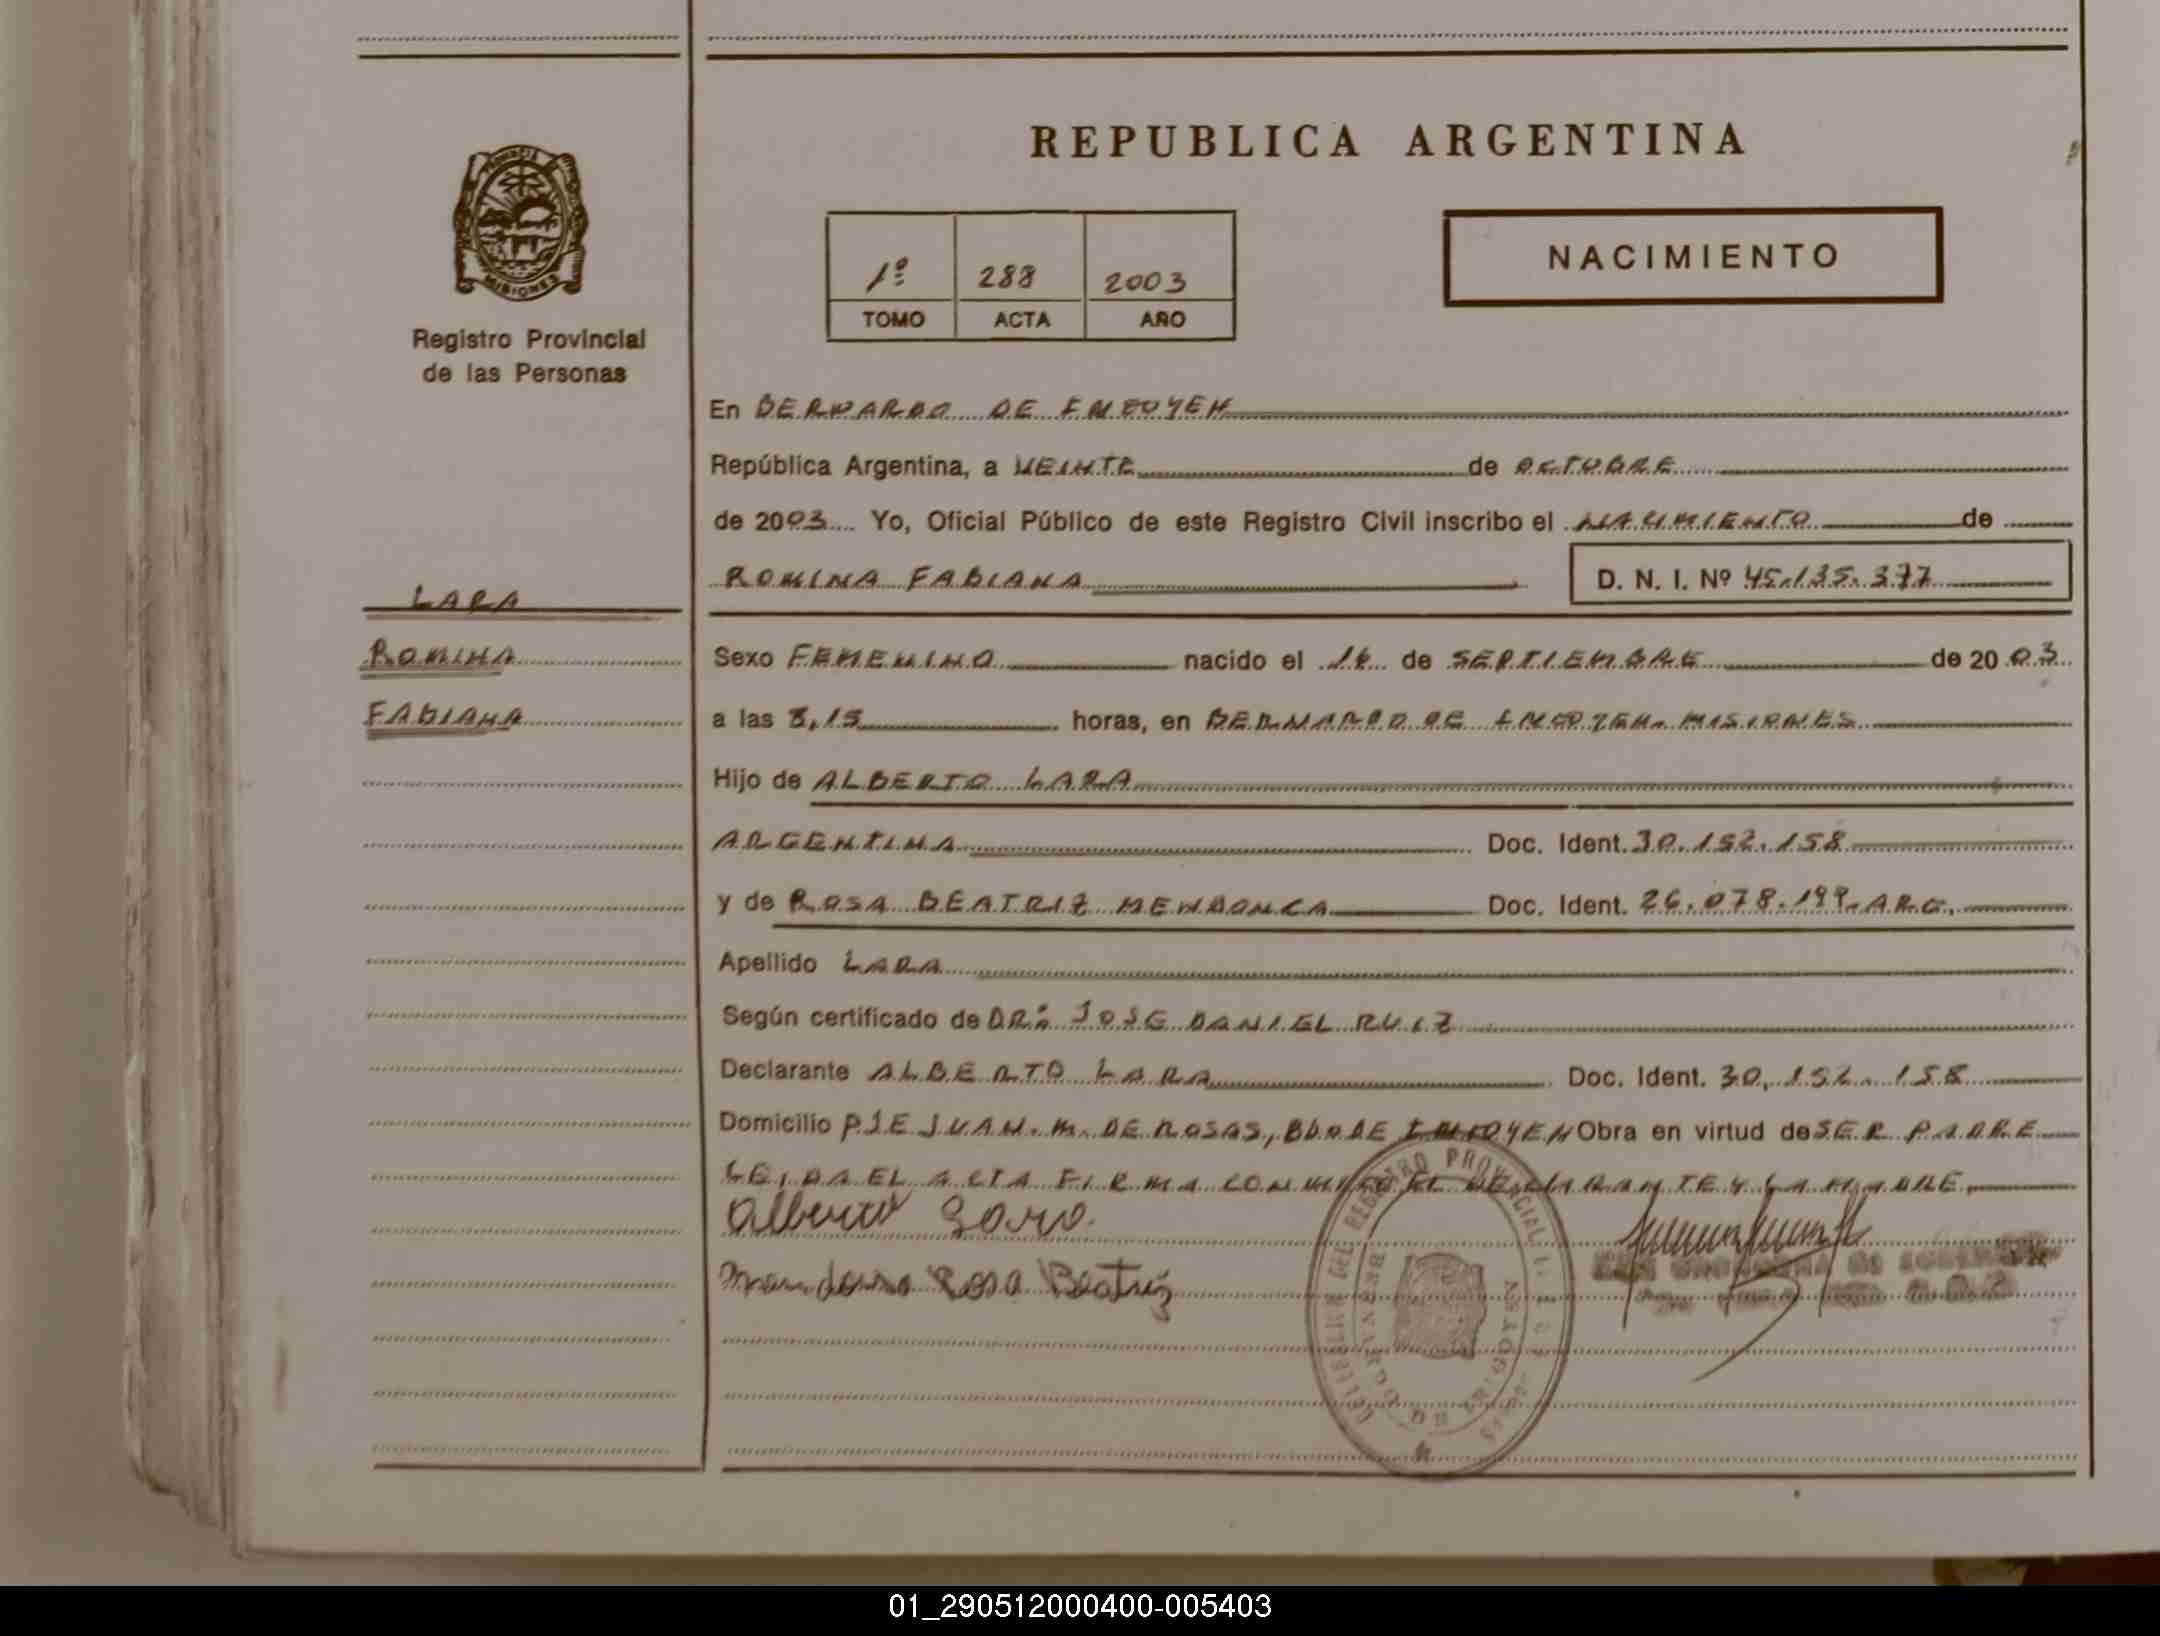 REPUBLICA ARGENTINA
PROVINCIA
MISIONES
Registro Provincial
de las Personas
1º 288 2003
TOMO ACTA AÑO
NACIMIENTO
En BERNARDO DE IRIGOYEN
República Argentina, a VEINTE de OCTUBRE
de 2003 Yo, Oficial Público de este Registro Civil inscribo el NACIMIENTO de
ROMINA FABIANA D. N. I. Nº 45.135.377
LARA
ROMINA
FABIANA
Sexo FEMENINO nacido el de SEPTIEMBRE de 2003
a las 8,15 horas, en BERNARDO DE IRIGOYEN. MISIONES
Hijo de ALBERTO LARA
ARGENTINA Doc. Ident. 30.152.158
y de ROSA BEATRIZ MENDONCA Doc. Ident. 26.078.199. ARG.
Apellido LARA
Según certificado de DR: JOSE DANIEL RUIZ
Declarante ALBERTO LARA Doc. Ident. 30.152.158
Domicilio PJE JUAN. M. DE ROSAS, BDO DE IRIGOYEN Obra en virtud de SER PADRE
LEIDA EL ACTA FIRMA CONMIGO EL DECLARANTE Y LA MADRE.
Alberto Lara
Mendonca Rosa Beatriz
DEL REGISTRO PROVINCIAL
BERNARDO DE IRIGOYEN
01_290512000400-005403